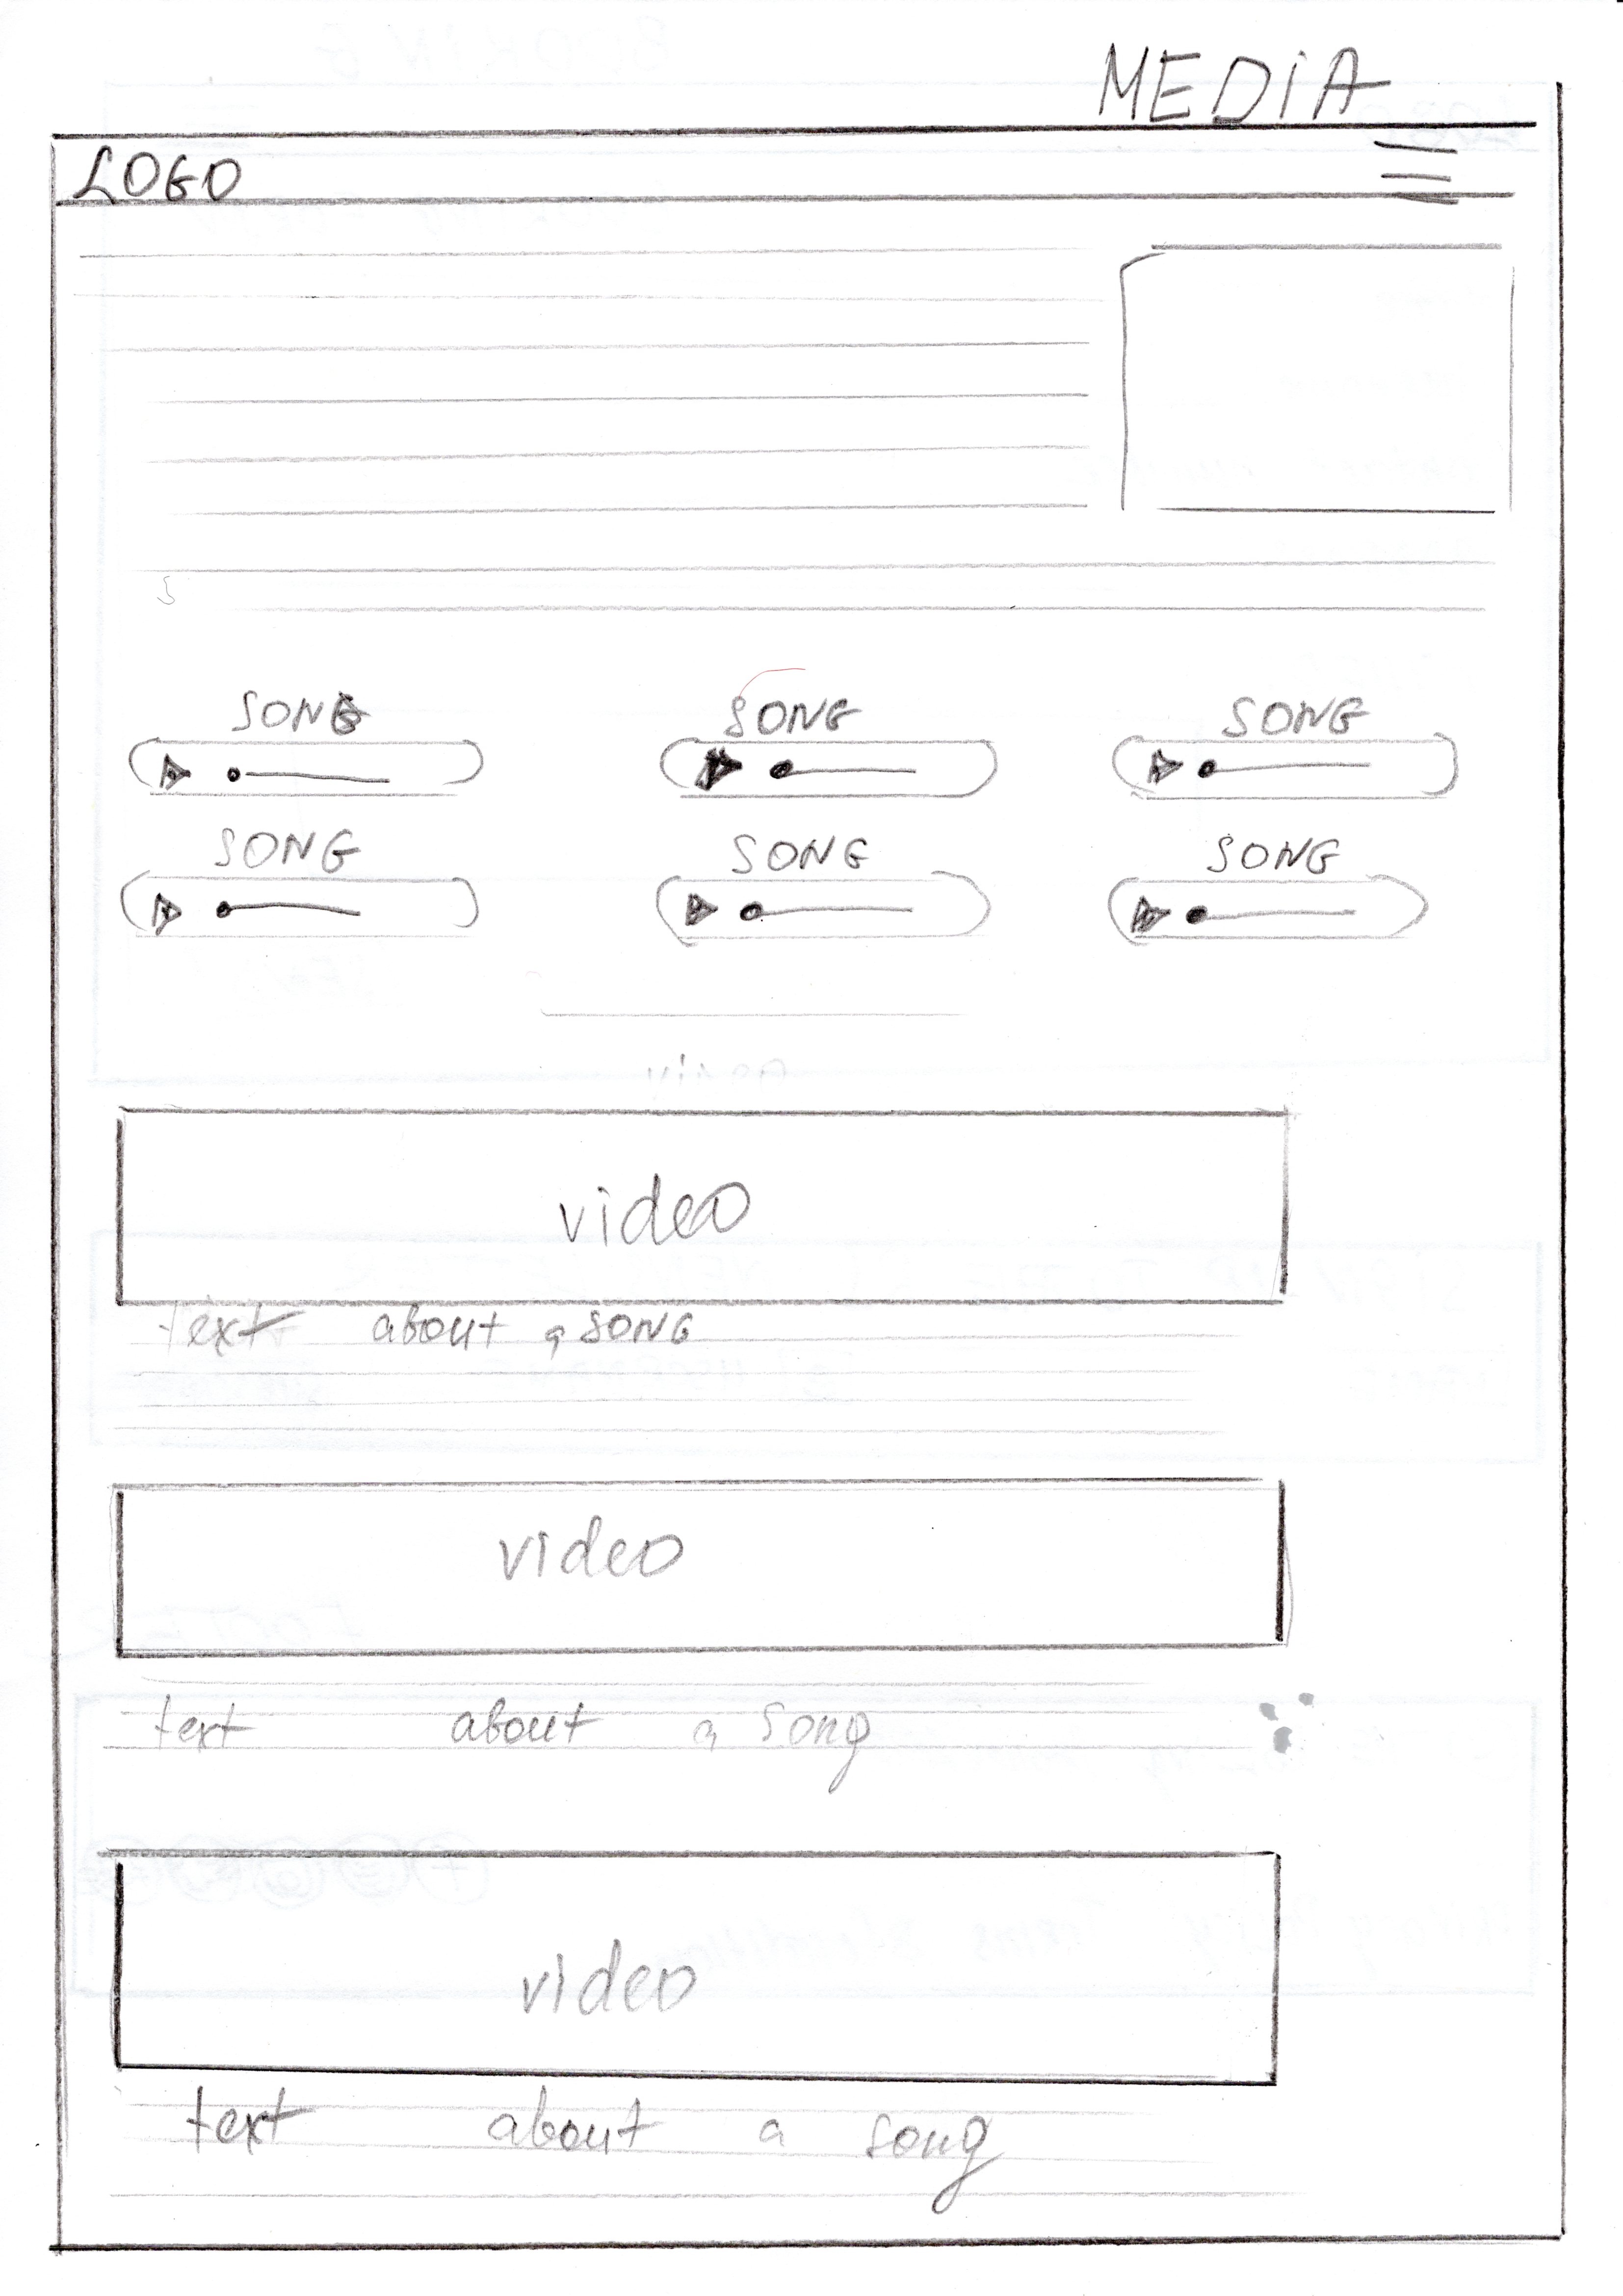 MEDIA
LOGO
SONG SONG SONG
SONG SONG SONG
video
text about a SONG
video
text about a song
video
text about a song